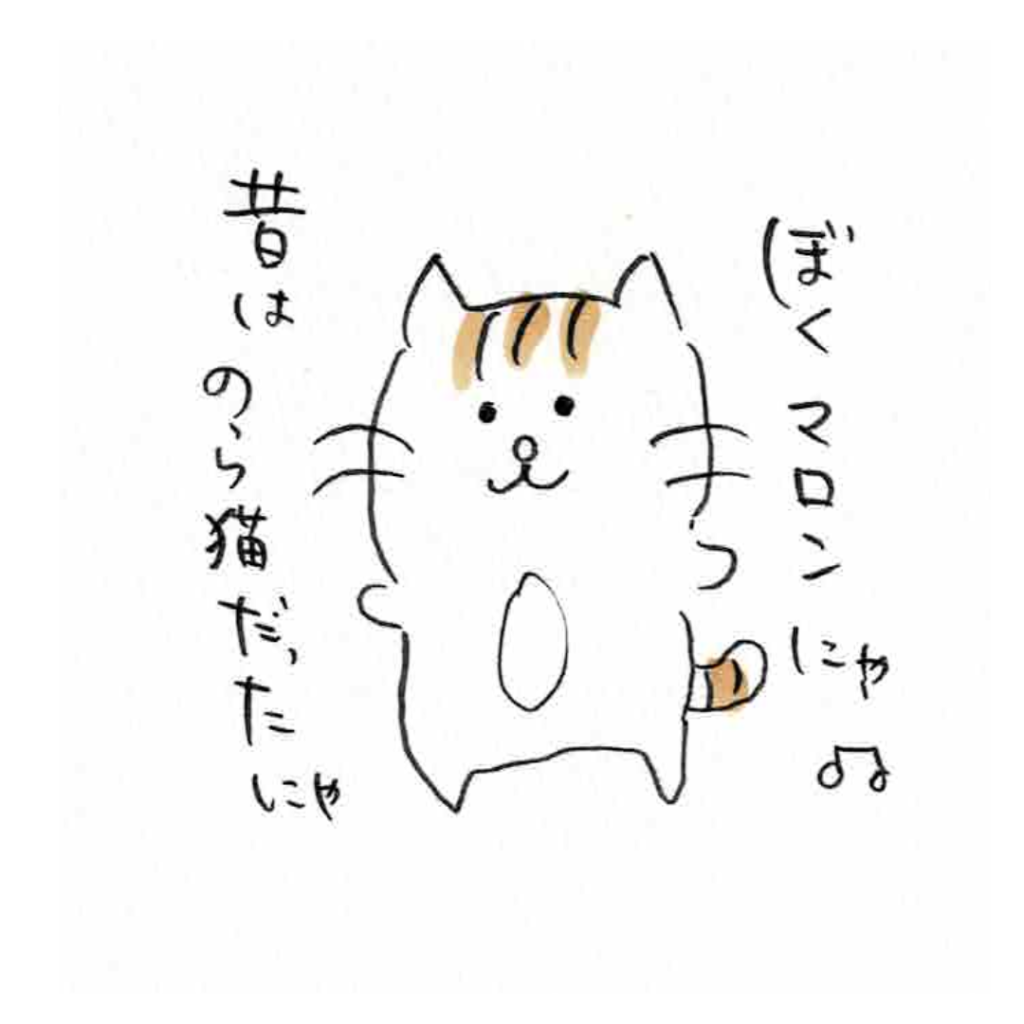 ぼくマロンにゃ♫
昔はのら猫だったにゃ